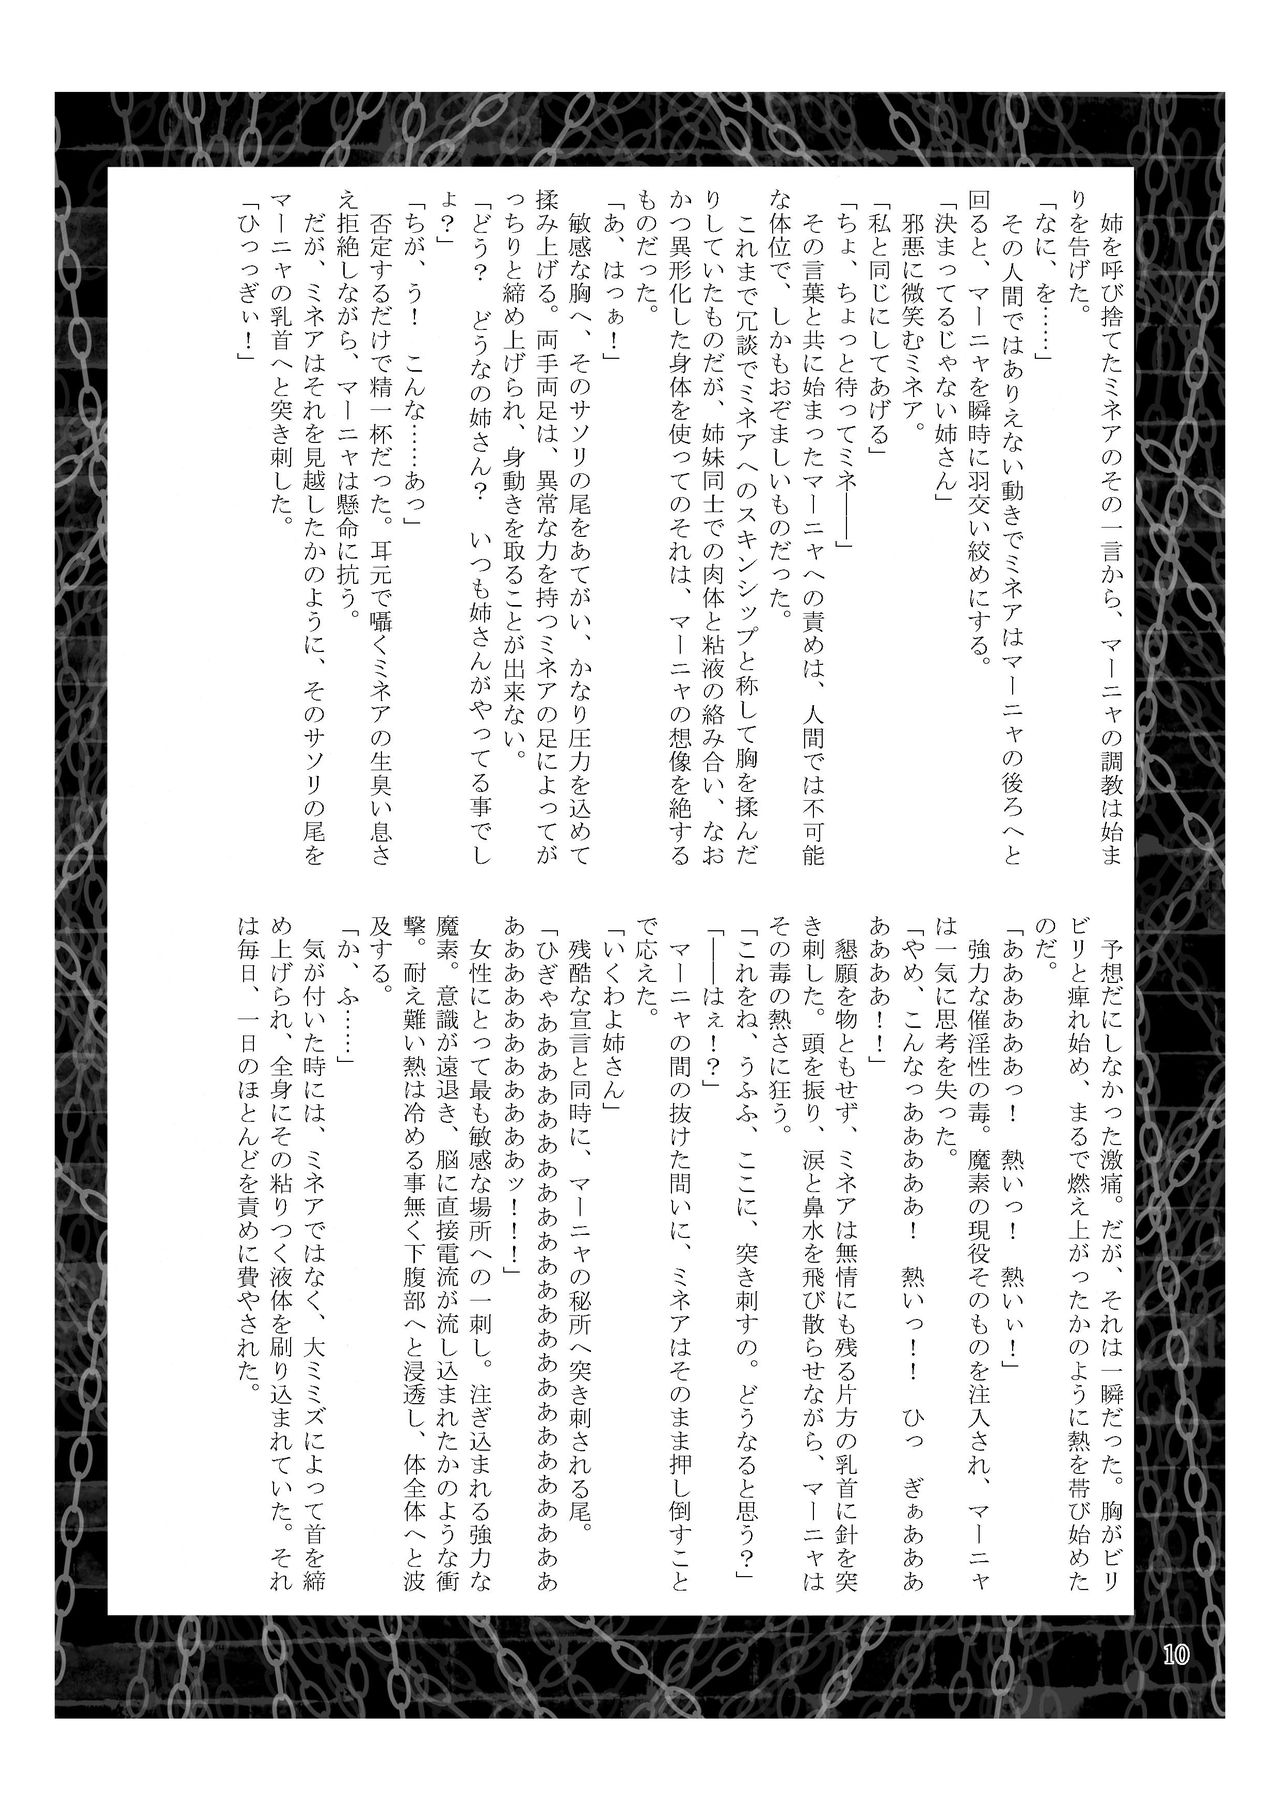 姉を呼び捨てたミネアのその一言から、マーニャの調教は始ま
りを告げた。
「なに、を……」
　その人間ではありえない動きでミネアはマーニャの後ろへと
回ると、マーニャを瞬時に羽交い絞めにする。
「決まってるじゃない姉さん」
　邪悪に微笑むミネア。
「私と同じにしてあげる」
「ちょ、ちょっと待ってミネ――」
　その言葉と共に始まったマーニャへの責めは、人間では不可能
な体位で、しかもおぞましいものだった。
　これまで冗談でミネアへのスキンシップと称して胸を揉んだ
りしていたものだが、姉妹同士での肉体と粘液の絡み合い、なお
かつ異形化した身体を使ってのそれは、マーニャの想像を絶する
ものだった。
「あ、はっぁ！」
　敏感な胸へ、そのサソリの尾をあてがい、かなり圧力を込めて
揉み上げる。両手両足は、異常な力を持つミネアの足によってが
っちりと締め上げられ、身動きを取ることが出来ない。
「どう？　どうなの姉さん？　いつも姉さんがやってる事でし
ょ？」
「ちが、う！　こんな……あっ」
　否定するだけで精一杯だった。耳元で囁くミネアの生臭い息さ
え拒絶しながら、マーニャは懸命に抗う。
　だが、ミネアはそれを見越したかのように、そのサソリの尾を
マーニャの乳首へと突き刺した。
「ひっっぎぃ！」
　予想だにしなかった激痛。だが、それは一瞬だった。胸がビリ
ビリと痺れ始め、まるで燃え上がったかのように熱を帯び始めた
のだ。
「ああああああっ！　熱いっ！　熱いぃ！」
　強力な催淫性の毒。魔素の現役そのものを注入され、マーニャ
は一気に思考を失った。
「やめ、こんなっああああああ！　熱いっ！！　ひっ　ぎぁあああ
ああああ！！」
　懇願を物ともせず、ミネアは無情にも残る片方の乳首に針を突
き刺した。頭を振り、涙と鼻水を飛び散らせながら、マーニャは
その毒の熱さに狂う。
「これをね、うふふ、ここに、突き刺すの。どうなると思う？」
「――はぇ！？」
　マーニャの間の抜けた問いに、ミネアはそのまま押し倒すこと
で応えた。
「いくわよ姉さん」
　残酷な宣言と同時に、マーニャの秘所へ突き刺される尾。
「ひぎゃああああああああああああああああああああああああああ
ああああああああああああッ！！！」
　女性にとって最も敏感な場所への一刺し。注ぎ込まれる強力な
魔素。意識が遠退き、脳に直接電流が流し込まれたかのような衝
撃。耐え難い熱は冷める事無く下腹部へと浸透し、体全体へと波
及する。
「か、ふ……」
　気が付いた時には、ミネアではなく、大ミミズによって首を締
め上げられ、全身にその粘りつく液体を刷り込まれていた。それ
は毎日、一日のほとんどを責めに費やされた。
10